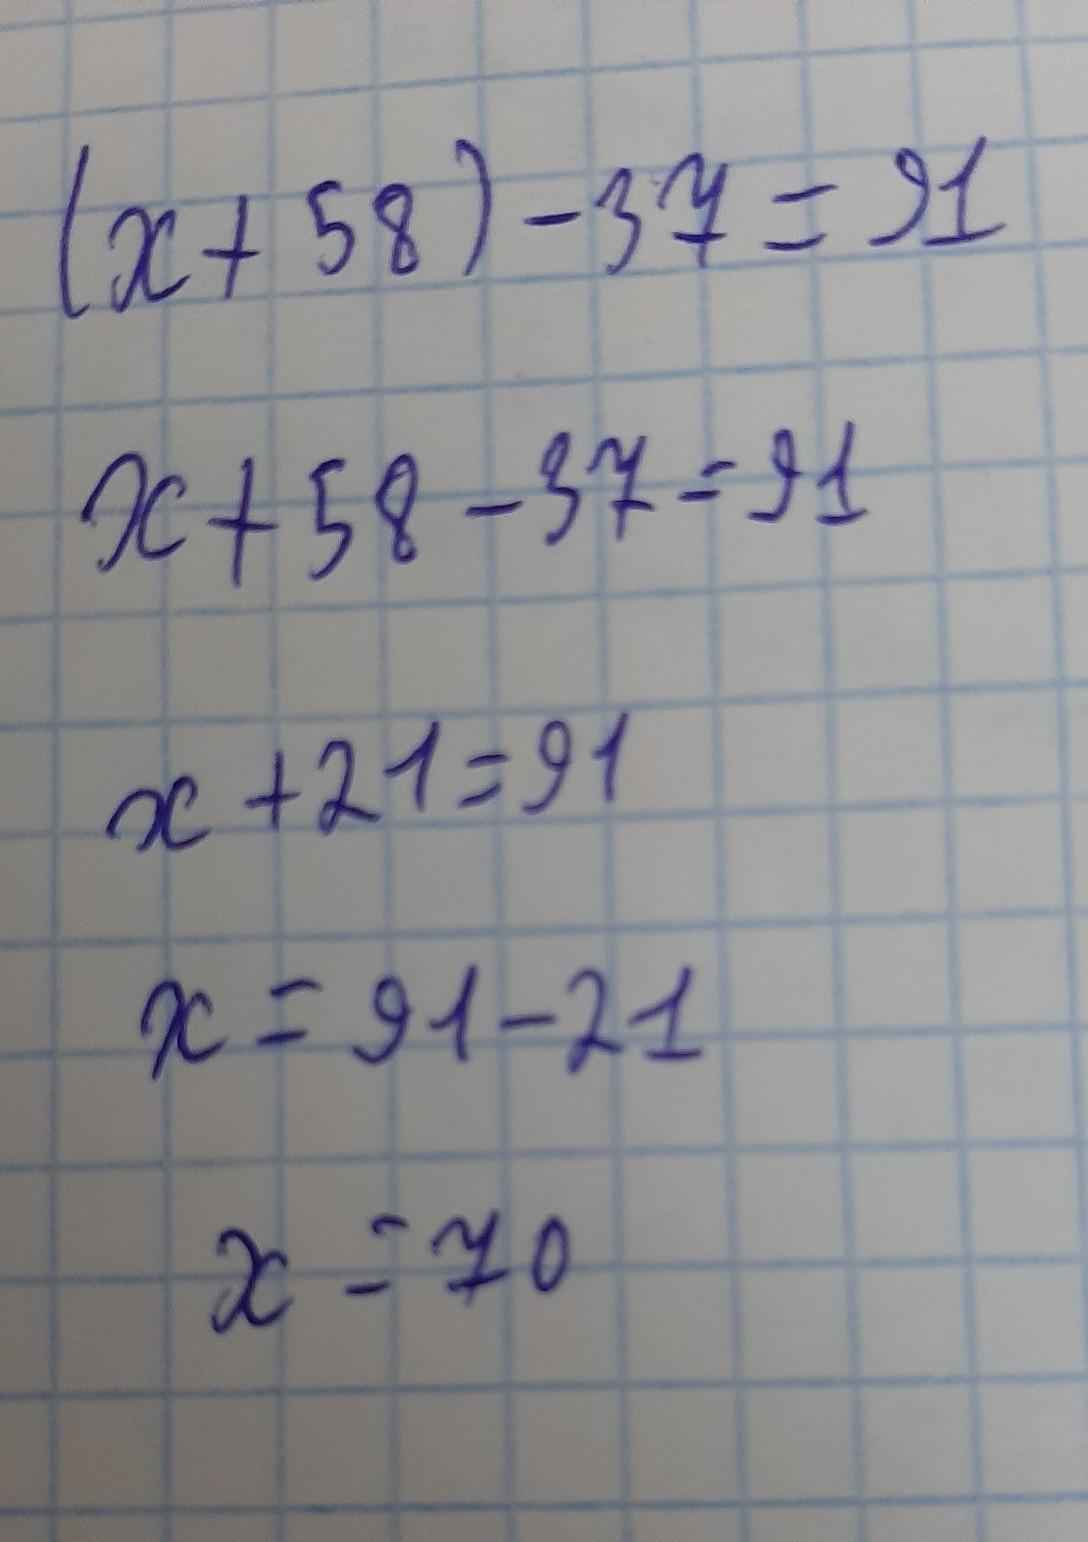 (x+58)-37=91
x+58-37=91
x+21=91
x=91-21
x=70